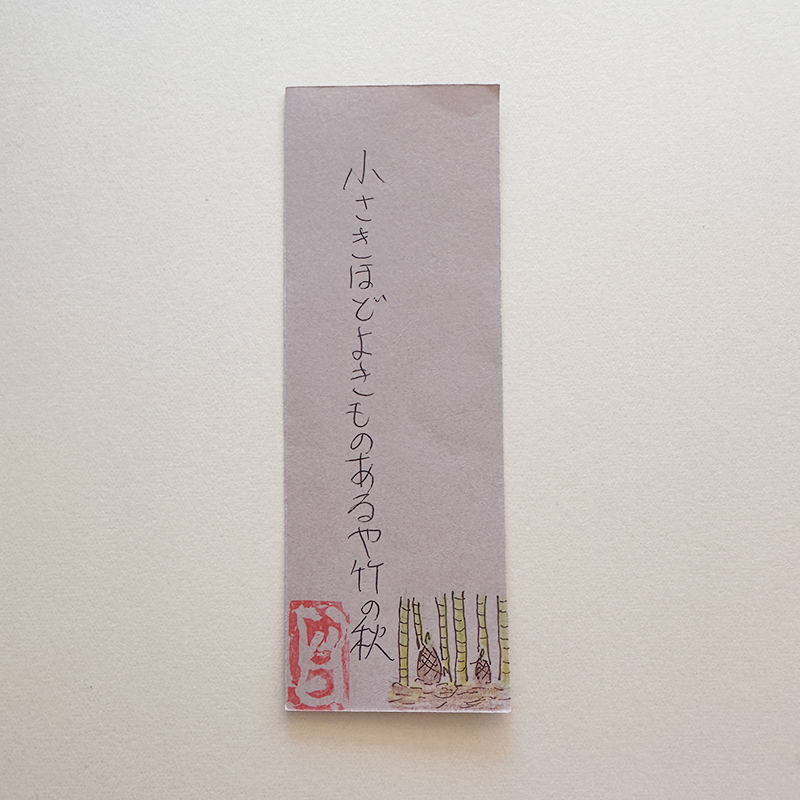 小さきほどよきものあるや竹の秋